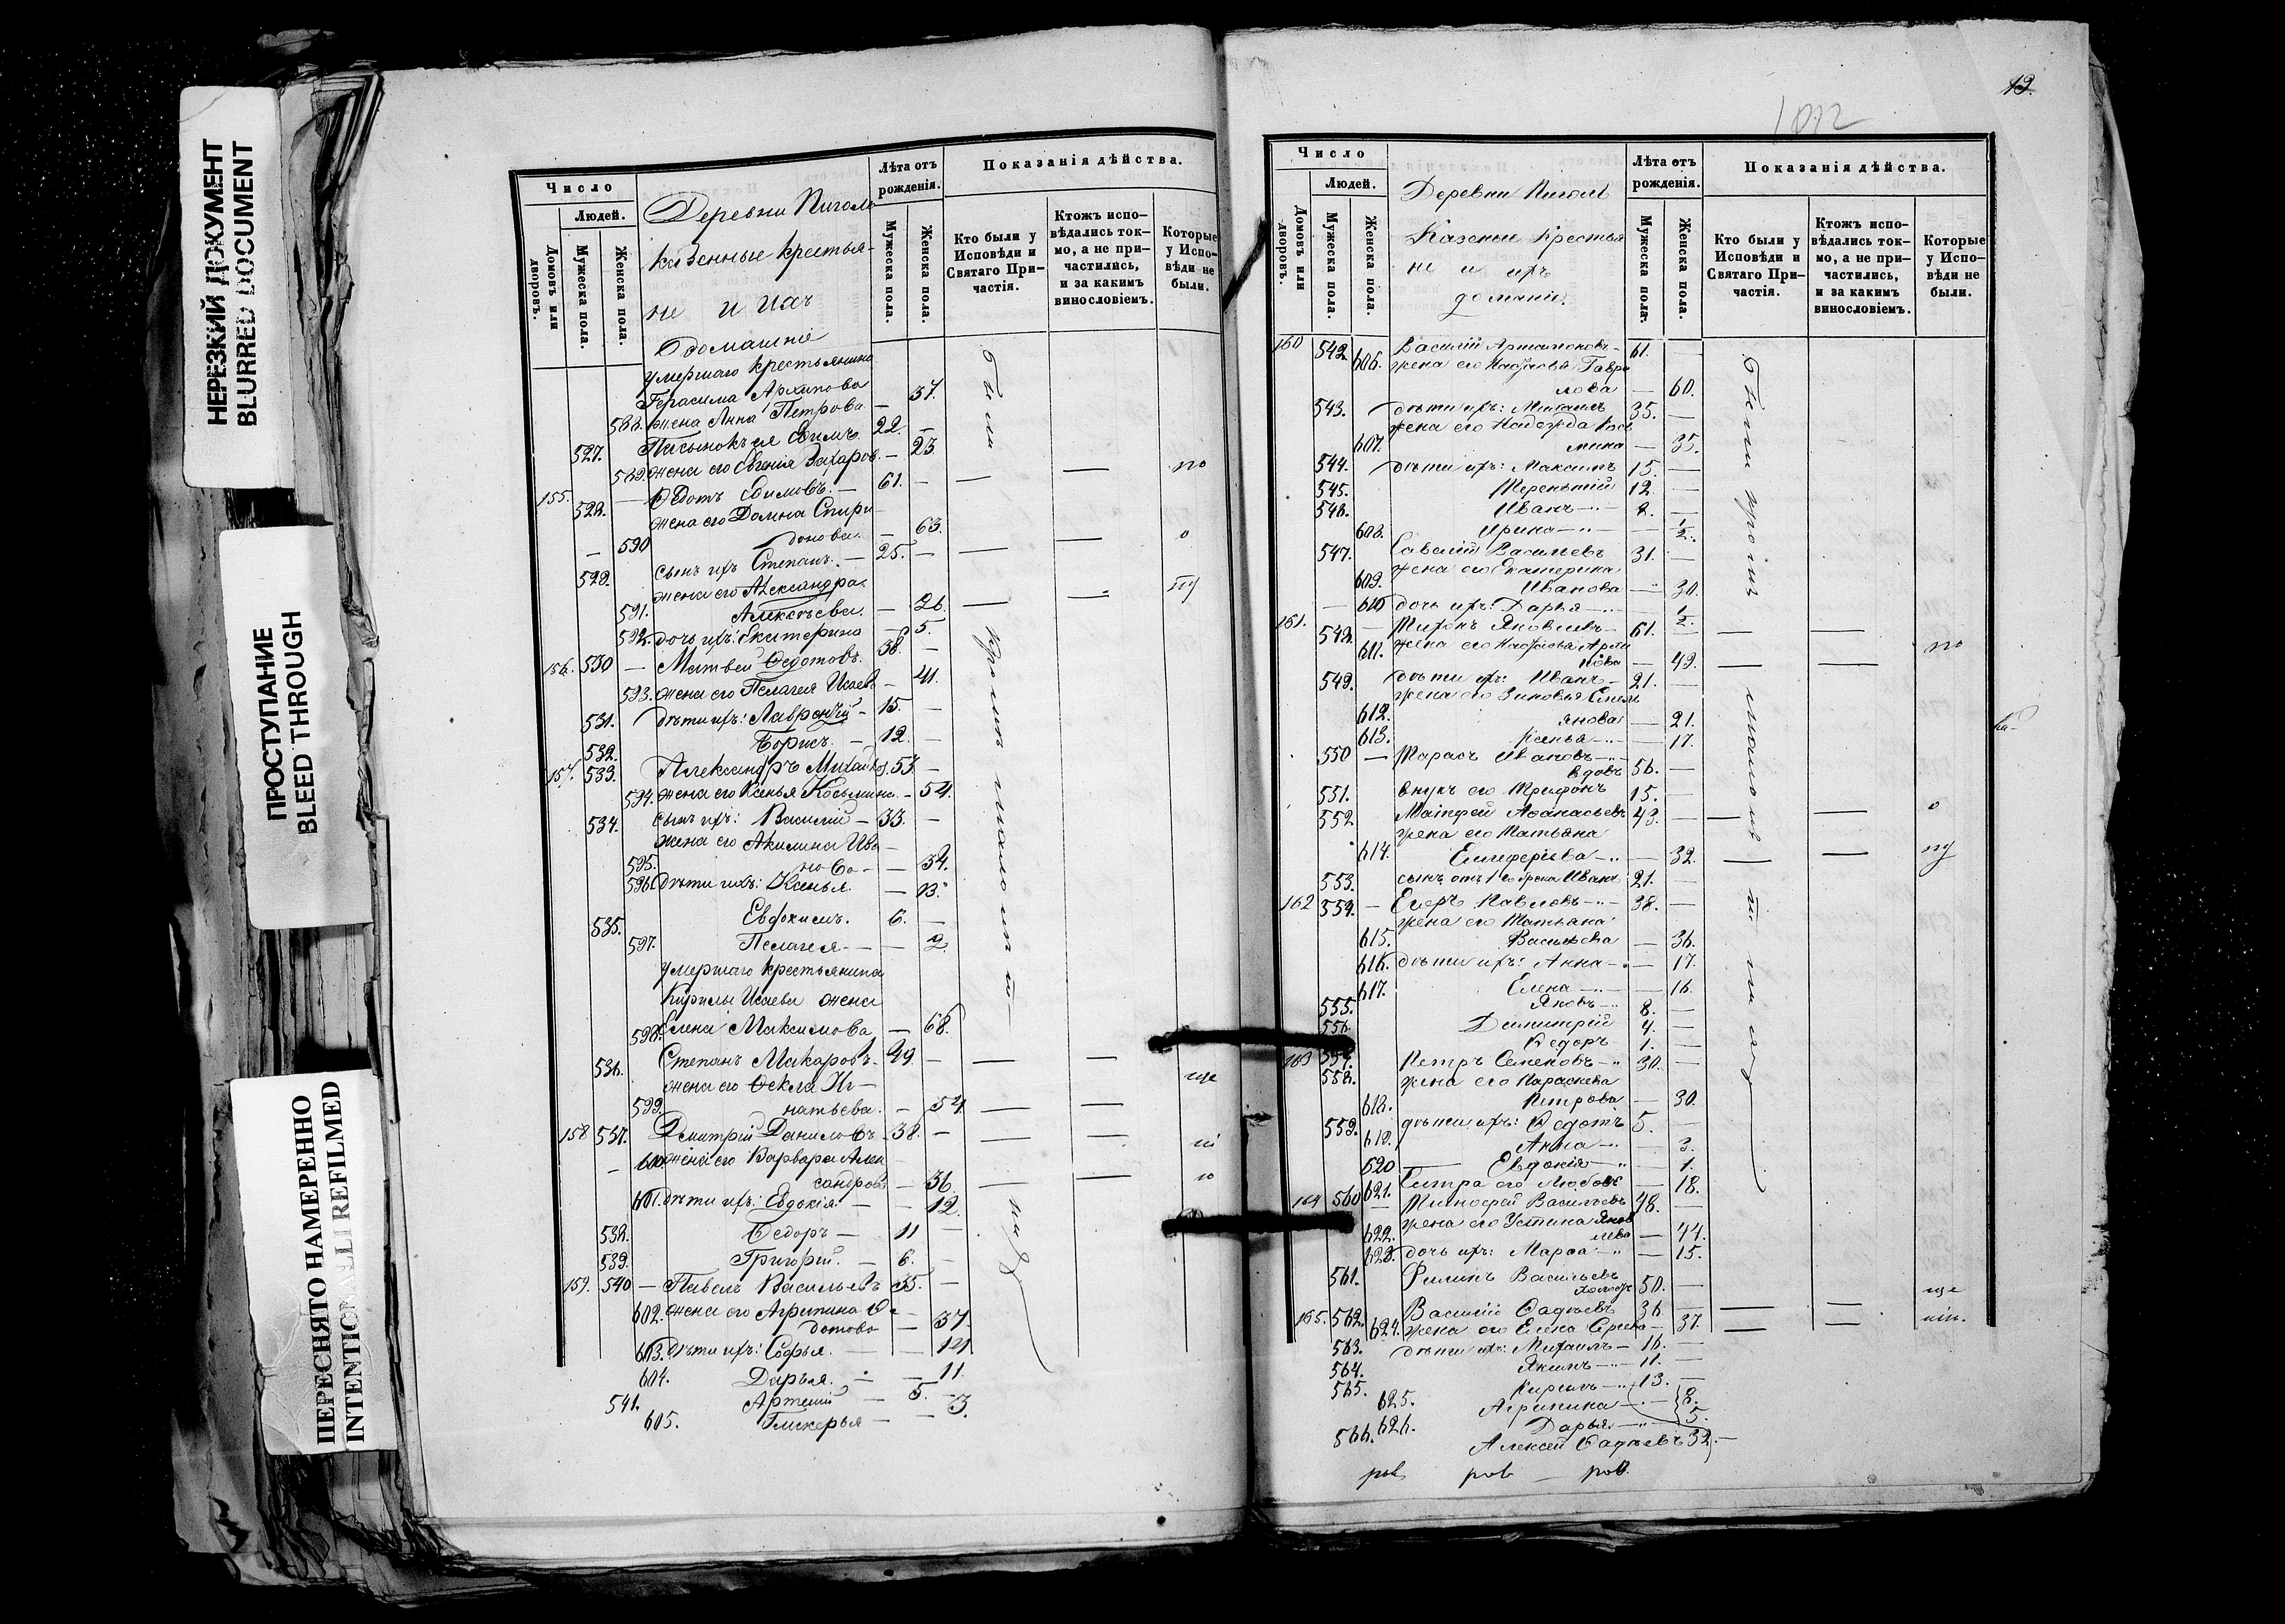 НЕРЕЗКИЙ ДОКУМЕНТ
BLURRED DOCUMENT
ПРОСТУПАНИЕ
BLEED THROUGH
ПЕРЕСНЯТО НАМЕРЕННО
INTENTIONALLI REFILMED
Число
Людей.
Домовъ или дворовъ.
Мужеска пола.
Женска пола.
Деревни
казенные крестья-
не и ихъ
домашніе
Лѣта отъ рожденія.
Мужеска пола.
Женска пола.
Показанія дѣйства.
Кто были у Исповѣди и Святаго Причастія.
Ктожъ исповѣдались токмо, а не причастились, и за какимъ винословіемъ.
Которые у Исповѣди не были.
умершаго крестьянина
Герасима Архипова
588. жена Анна Петрова — 37.
527. Пасынокъ ея 22. —
589. жена его Евгенія Захаров. — 23.
155. 528. — Ѳедотъ 61. —
жена его Домна Спири
590 донова. — 63.
529. сынъ ихъ Степанъ. — 25. —
жена его Александра
591. Алексѣева. — 26.
592. дочь ихъ: Екатерина — 5.
156. 530 — Матвей Ѳедотовъ. 38. —
593. жена его Пелагея Исаев — 41.
531. дѣти ихъ: Лаврентій — 15. —
532. Борисъ. — 12. —
157. 533. Александръ Михайлов. 53 —
594. жена его Ксенья Козьмина. — 54.
534. сынъ ихъ: Василій — 33. —
жена его Акилина Ива
595. нова — 34.
596. дѣти ихъ: Ксенья. — 13.
535. Евдокимъ. 6. —
597. Пелагея — — 2.
умершаго крестьянина
Кирилы Исаева жена
598. Елена Максимова — 68.
536. Степанъ Макаровъ. 49. —
жена его Ѳекла Иг—
599. натьева. — 54
158 537. Дмитрій Даниловъ 38. —
600. жена его Варвара Алек
сандров — 36.
601. дѣти ихъ: Евдокія. — — 12.
538. Ѳедоръ — 11 —
539. Григорій. — 6. —
159. 540 — Павелъ Васильевъ 35. —
602. жена его Агрипина Ѳе
дотова — 37.
603. дѣти ихъ: Софья. — — 14
604. Дарья. — — 11
541. Артемій — 5. —
605. Гликерья — — 3.
13.
1012
Число
Людей.
Домовъ или дворовъ.
Мужеска пола.
Женска пола.
Деревни
Казеные крестья
не и ихъ
домашніе
Лѣта отъ рожденія.
Мужеска пола.
Женска пола.
Показанія дѣйства.
Кто были у Исповѣди и Святаго Причастія.
Ктожъ исповѣдались токмо, а не причастились, и за какимъ винословіемъ.
Которые у Исповѣди не были.
160 542 Василій Артамоновъ — 61. —
606. жена его Настасья Гаври
лова — 60.
543. дѣти ихъ: Михаилъ 35. —
жена его Надежда Козь
607. мина — 35.
544. дѣти ихъ: Максимъ 15. —
545. Терентій 12. —
546. Иванъ 8. —
608. Ирина — 1/2.
547. Савелій Васильевъ 31. —
жена его Екатерина
609. Иванова — 30.
610 дочь ихъ: Дарья — 1/2.
161. 548. — Тихонъ Яковлевъ 61. —
611. жена его Настасья
49.
549. дѣти ихъ: Иванъ — 21. —
жена его Зиновья Емель
612. янова — 21.
613. Ксенья — 17.
550 — Тарасъ Ивановъ
вдовъ 56. —
551. внукъ его Трифонъ 15. —
552 Матфей Аѳанасьевъ 43. —
жена его Татьяна
614. — 32.
553. сынъ отъ 1го брака Иванъ 21. —
162 554. — Егоръ Павловъ 38. —
жена его Татьяна
615. Васильева — 36.
616. дѣти ихъ: Анна — 17.
617. Елена — 16.
555. Яковъ 8. —
556. Димитрій 4. —
Ѳедоръ 1. —
163 557. Петръ Семеновъ 30. —
558. жена его Параскева
618. Петрова — 30.
559. дѣти ихъ: Ѳедотъ 5. —
619. Анна — 3.
620 Евдокія — 1.
621. Сестра его Любовь — 18.
164 560 — Тимофей Васильевъ 48. —
жена его Устинья Яков
622. лева — 44.
623. дочь ихъ: Марѳа — 15.
561. Филипъ Васильевъ
холостъ 50. —
165. 562. Василій Ѳадѣевъ 36. —
624. жена его Елена Сергѣева — 37.
563. дѣти ихъ: Михаилъ — 16. —
564. Якимъ 11. —
565. Кирилъ 13. —
625. Агрипина — 8.
626. Дарья — 5.
566. Алексѣй Ѳадѣевъ 32. —